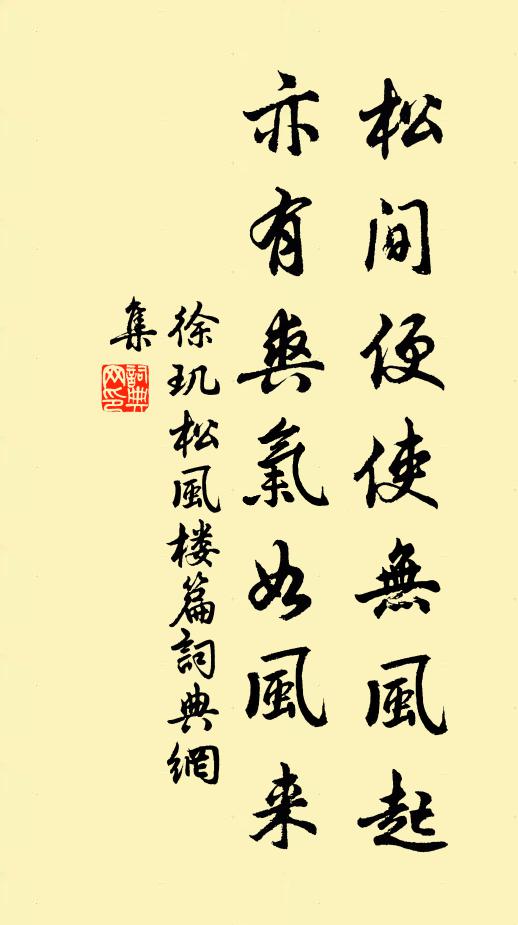 松間便使無風起
亦有爽氣如風来
徐玑松風楼篇詞典網
集
詞典
网印